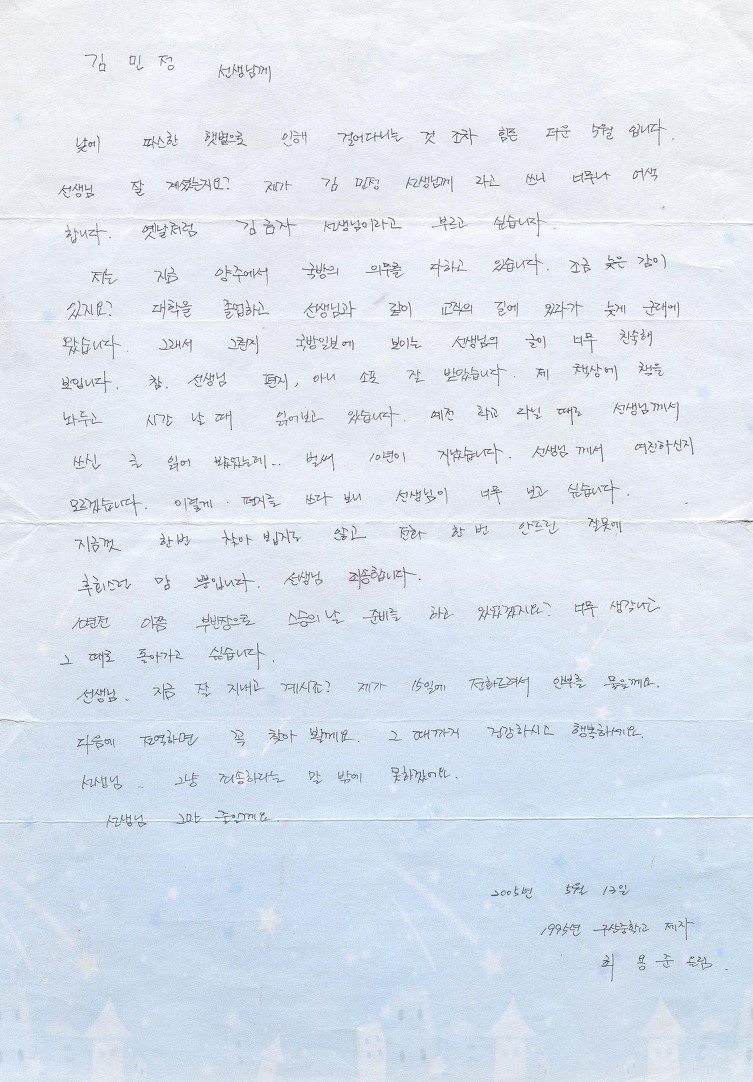 김 민 정 선생님께
낮에 따스한 햇볕으로 인해 걸어다니는 것 조차 힘든 더운 5월 입니다.
선생님 잘 계셨는지요? 제가 김 민정 선생님께 라고 쓰니 너무나 어색
합니다. 옛날처럼 김금자 선생님이라고 부르고 싶습니다.
저는 지금 양주에서 국방의 의무를 다하고 있습니다. 조금 늦은 감이
있지요? 대학을 졸업하고 선생님과 같이 교직의 길에 있다가 늦게 군대에
왔습니다. 그래서 그런지 국방일보에 보이는 선생님의 글이 너무 친숙해
보입니다. 참. 선생님 편지, 아니 소포 잘 받았습니다. 제 책상에 책을
놔두고 시간 날 때 읽어보고 있습니다. 예전 학교 다닐 때도 선생님께서
쓰신 글 읽어 봤었는데.. 벌써 10년이 지났습니다. 선생님 께서 여전하신지
모르겠습니다. 이렇게 편지를 쓰다 보니 선생님이 너무 보고 싶습니다.
지금껏 한번 찾아 뵙지도 않고 전화 한 번 안드린 잘못에
후회스런 맘 뿐입니다. 선생님 죄송합니다.
10년전 이쯤 부반장으로 스승의 날 준비를 하고 있었겠지요? 너무 생각나는
그 때로 돌아가고 싶습니다.
선생님. 지금 잘 지내고 계시죠? 제가 15일에 전화드려서 안부를 물을께요.
다음에 전역하면 꼭 찾아 뵐께요. 그 때까지 건강하시고 행복하세요.
선생님 .. 그냥 죄송하다는 말 밖에 못하겠어요.
선생님 그만 줄일께요.
2005년 5월 12일
1995년 구산중학교 제자
최 용 준 드림.